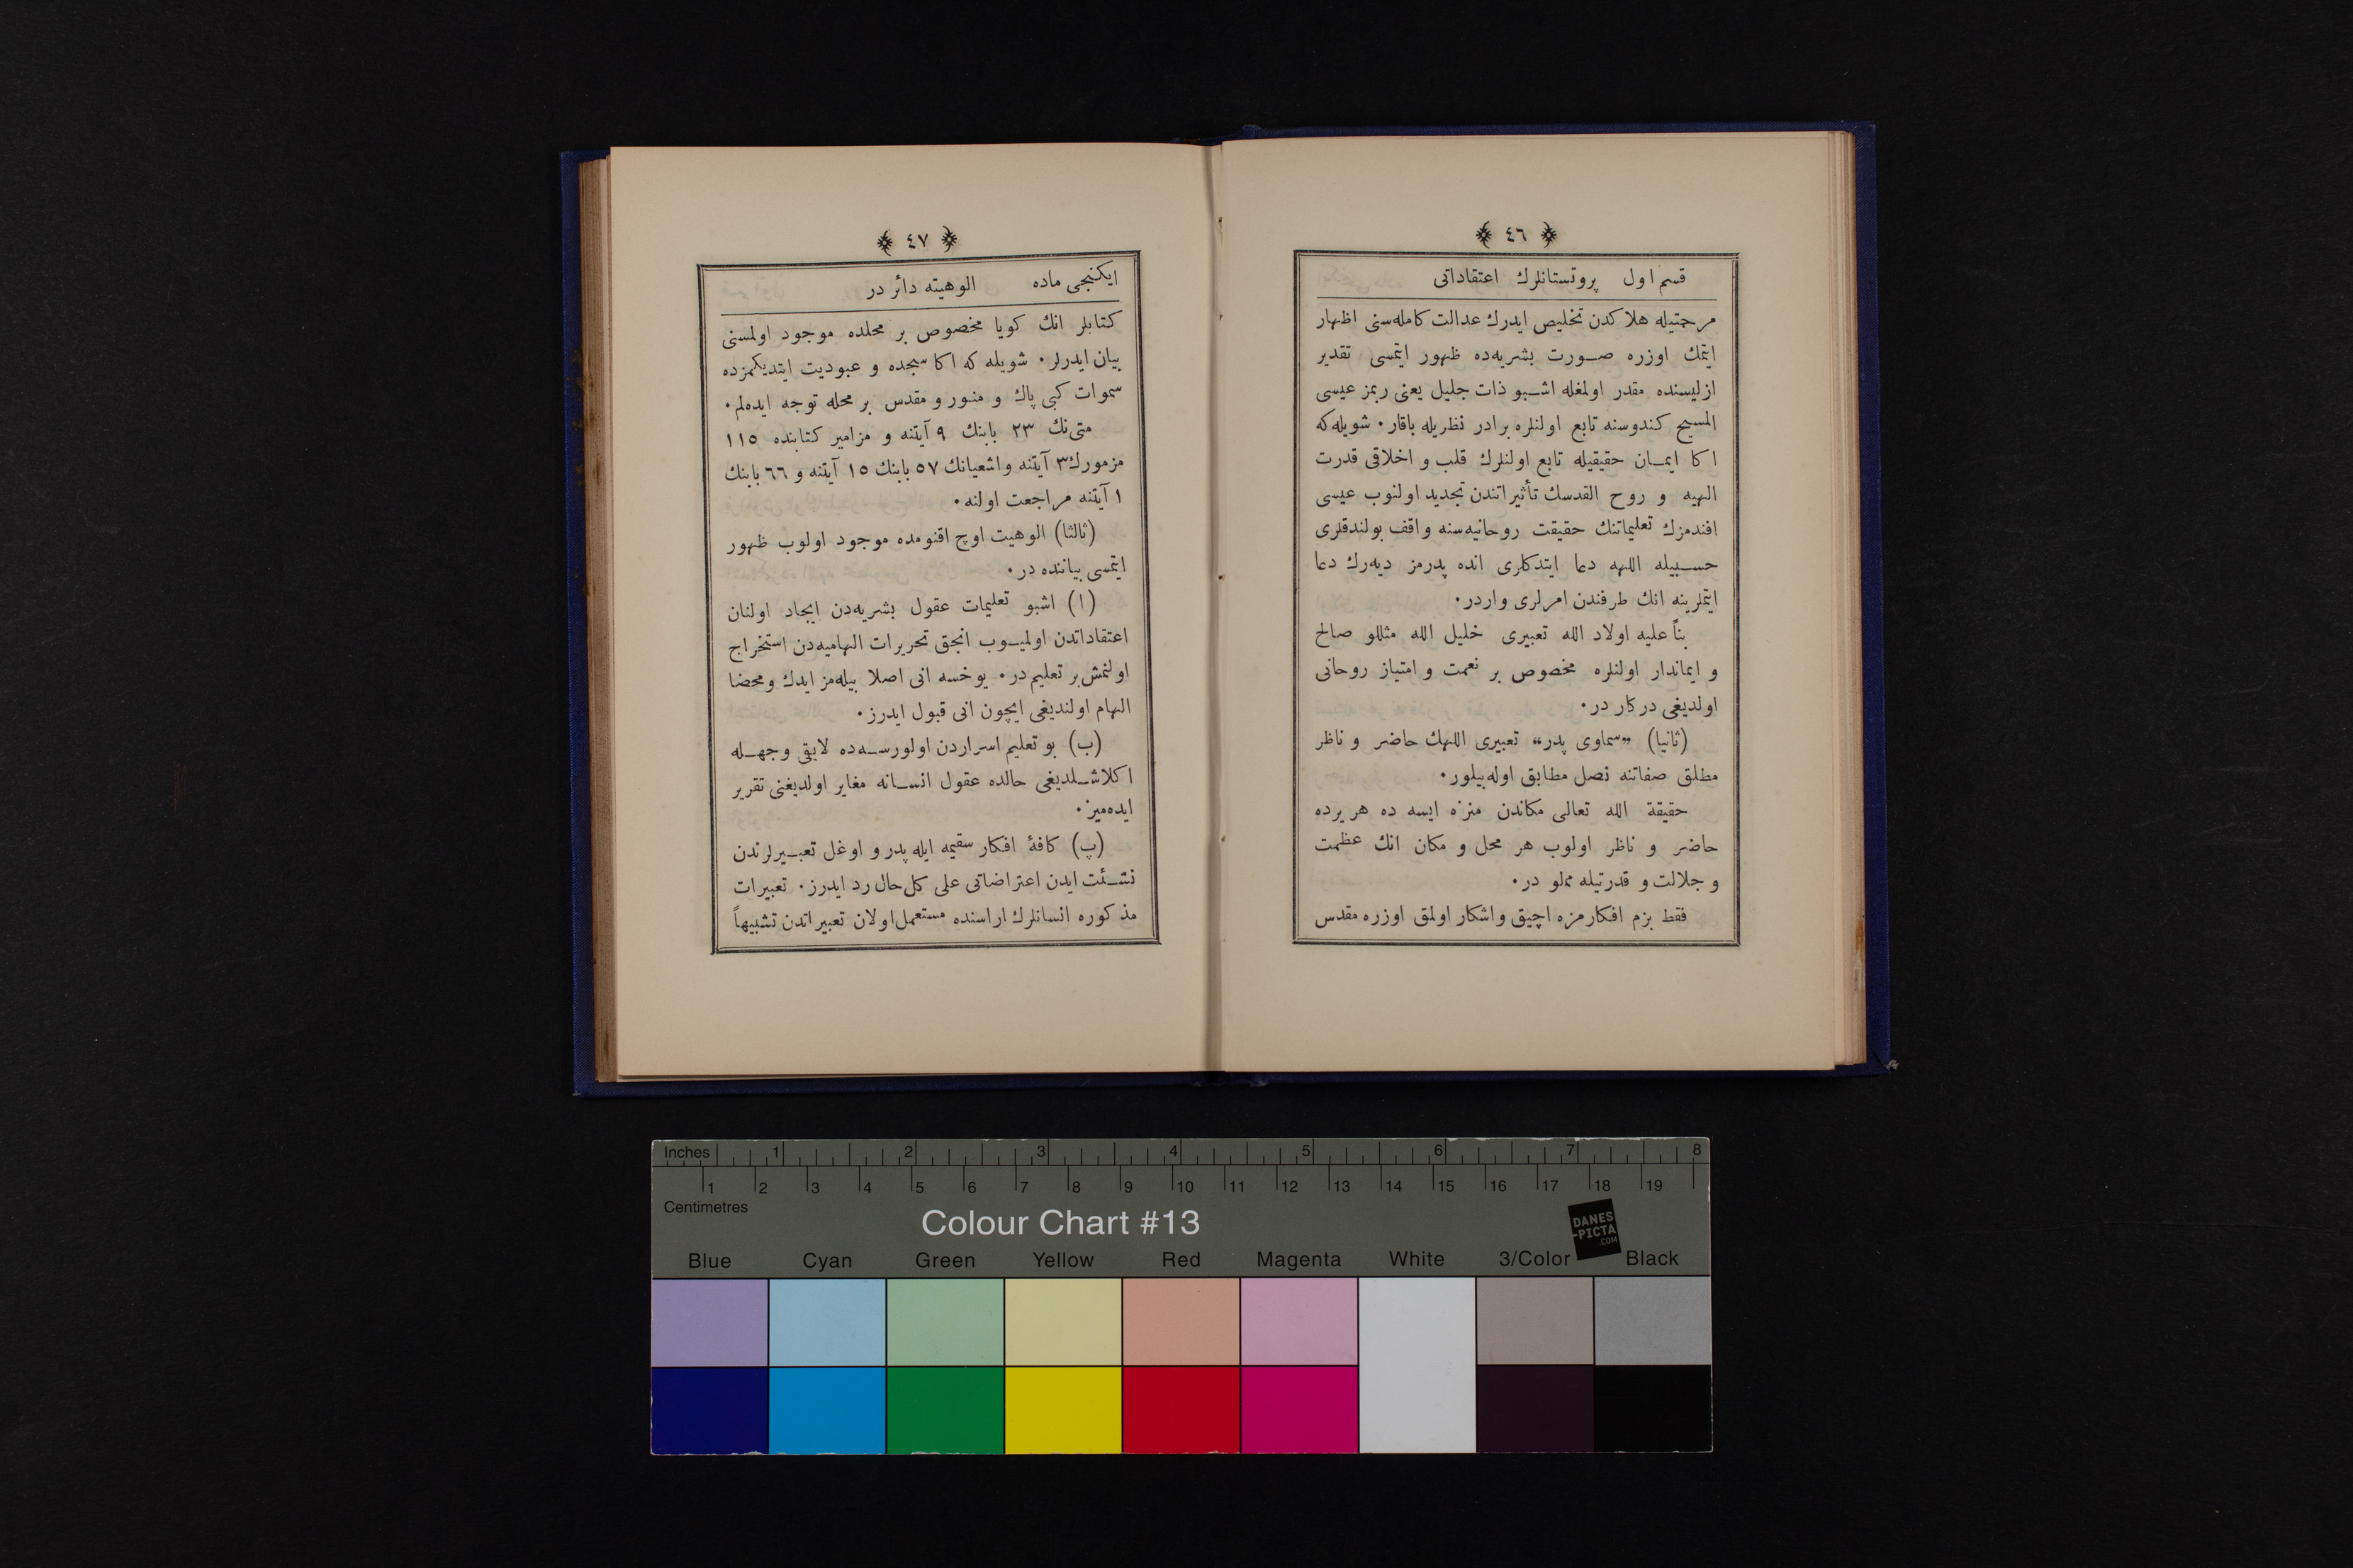 ٤٦
قسم اول پروتستانلرك اعتقاداتی
مرحمتیله هلاكدن تخلیص ایدرك عدالت كامله‌سنی اظهار
ایتمك اوزره صورت بشریه‌ده ظهور ایتمسی تقدیر
ازلیسنده مقدر اولمغله اشبو ذات جلیل یعنی ربمز عیسی
المسیح كندوسنه تابع اولنلره برادر نظریله باقار. شویله‌كه
اكا ایمان حقیقیله تابع اولنلرك قلب و اخلاقی قدرت
الهیه و روح القدسك تأثیراتندن تجدید اولنوب عیسی
افندمزك تعلیماتنك حقیقت روحانیه‌سنه واقف بولندقلری
حسبیله اللهه دعا ایتدكلری انده پدرمز دیه‌رك دعا
ایتملرینه انك طرفندن امرلری واردر.
بناً علیه اولاد الله تعبیری خلیل الله مثللو صالح
و ایماندار اولنلره مخصوص بر نعمت و امتیاز روحانی
اولدیغی دركار در.
(ثانیا) „سماوی پدر“ تعبیری اللهك حاضر و ناظر
مطلق صفاتنه نصل مطابق اوله‌بیلور.
حقیقة الله تعالی مكاندن منزه ایسه ده هر یرده
حاضر و ناظر اولوب هر محل و مكان انك عظمت
و جلالت و قدرتیله مملو در.
فقط بزم افكارمزه اچیق واشكار اولمق اوزره مقدس
٤٧
ایكنجی ماده الوهیته دائر در
كتابلر انك كویا مخصوص بر محلده موجود اولمسنی
بیان ایدرلر. شویله كه اكا سجده و عبودیت ایتدیكمزده
سموات كبی پاك و منور و مقدس بر محله توجه ایده‌لم.
متی‌نك ٢٣ بابنك ٩ آیتنه و مزامیر كتابنده ١١٥
مزمورك ٣ آیتنه واشعیانك ٥٧ بابنك ١٥ آیتنه و ٦٦ بابنك
١ آیتنه مراجعت اولنه.
(ثالثا) الوهیت اوچ اقنومده موجود اولوب ظهور
ایتمسی بیاننده در.
(ا) اشبو تعلیمات عقول بشریه‌دن ایجاد اولنان
اعتقاداتدن اولمیوب انجق تحریرات الهامیه‌دن استخراج
اولنمش بر تعلیم در. یوخسه انی اصلا بیله‌مز ایدك ومحضا
الهام اولندیغی ایچون انی قبول ایدرز.
(ب) بو تعلیم اسراردن اولورسه‌ده لایقی وجهله
اكلاشلدیغی حالده عقول انسانه مغایر اولدیغنی تقریر
ایده‌میز.
(پ) كافهٔ افكار سقیمه ایله پدر و اوغل تعبیرلرندن
نشئت ایدن اعتراضاتی علی كل حال رد ایدرز. تعبیرات
مذكوره انسانلرك اراسنده مستعمل اولان تعبیراتدن تشبیهاً
Inches 1 2 3 4 5 6 7 8
1 2 3 4 5 6 7 8 9 10 11 12 13 14 15 16 17 18 19
Centimetres
Colour Chart #13
DANES
-PICTA
.COM
Blue Cyan Green Yellow Red Magenta White 3/Color Black